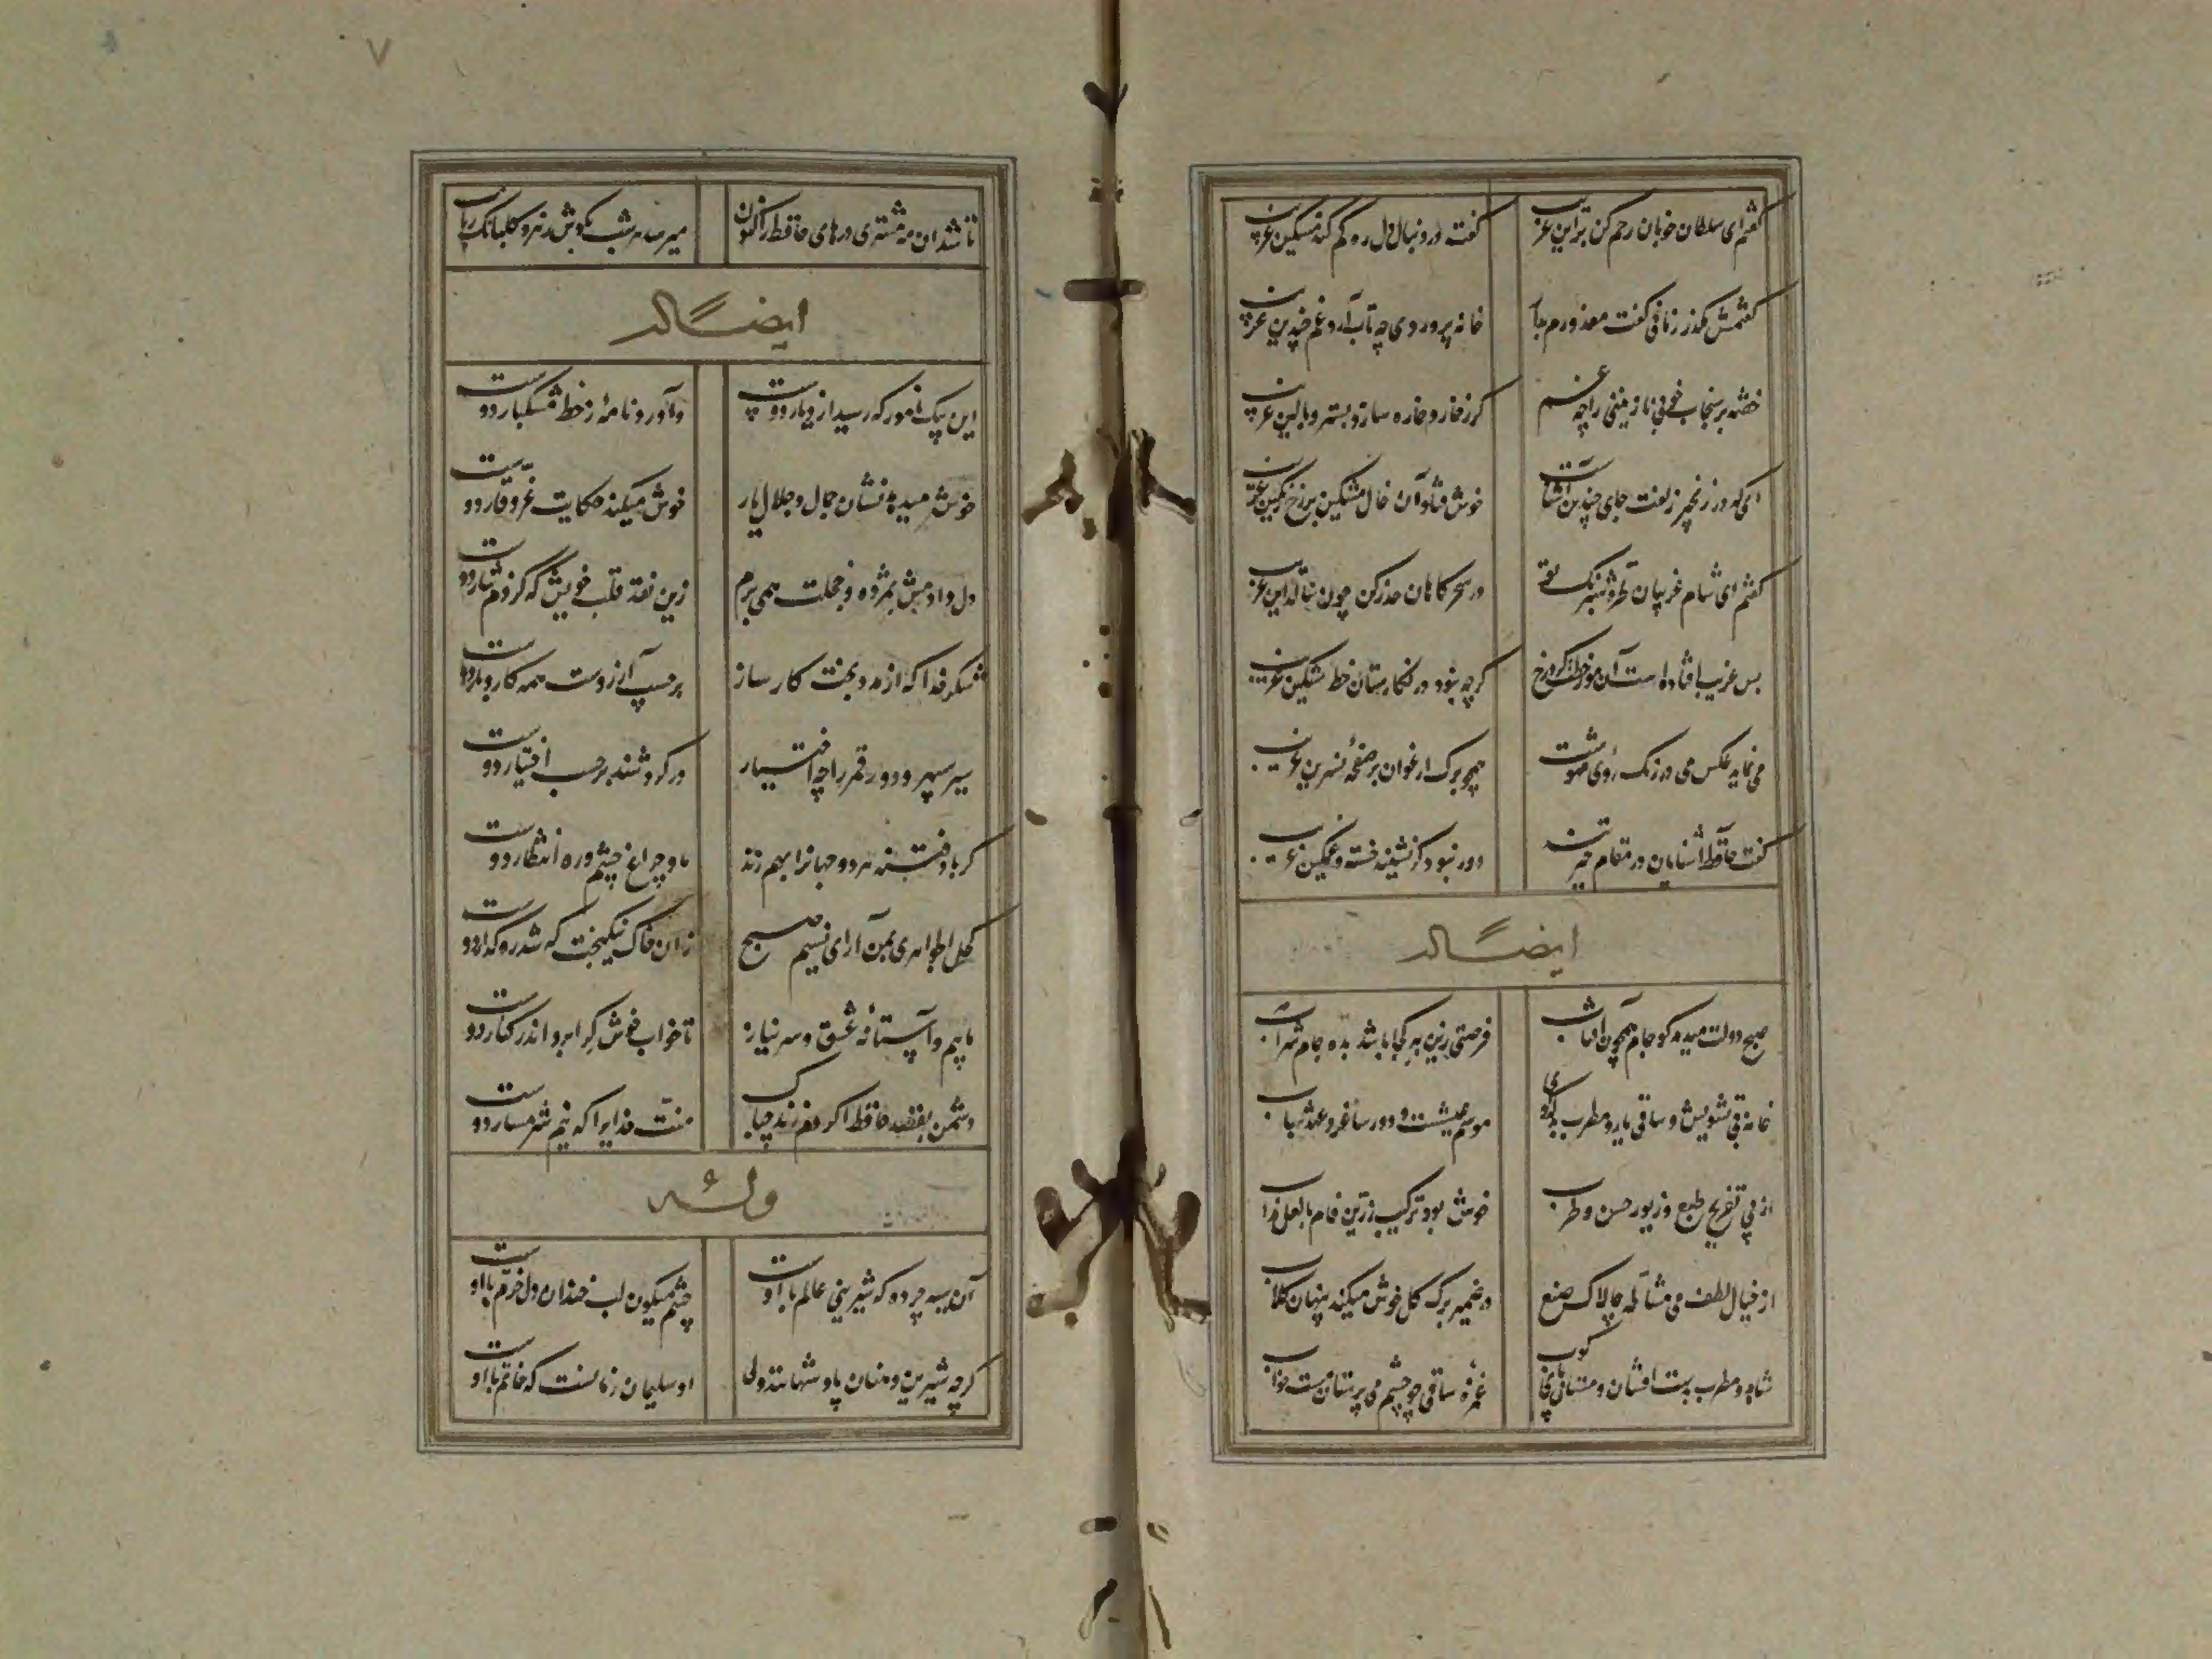 گفتم ای سلطان خوبان رحم کن بر این غریب
گفت در دنبال دل ره گم کند مسکین غریب
گفتمش مگذر زمانی گفت معذورم بدار
خانه پروردی چه تاب آرد غم چندین غریب
خفته بر سنجاب خوبی نازنینی را چه غم
گر ز خار و خاره سازد بستر و بالین غریب
ای که در زنجیر زلفت جای چندین آشناست
خوش فتاد آن خال مشکین بر رخ رنگین غریب
گفتم ای شام غریبان طره شبرنگ تو
در سحرگاهان حذر کن چون بنالد این غریب
بس غریب افتاده است آن مور خط گرد رخ
گرچه نبود در نگارستان خط مشکین غریب
می نماید عکس می در رنگ روی مهوشت
همچو برگ ارغوان بر صفحه نسرین غریب
گفت حافظ آشنایان در مقام حیرتند
دور نبود گر نشیند خسته و غمگین غریب
ایضاً له
صبح دولت میدمد کو جام همچون آفتاب
فرصتی زین به کجا باشد بده جام شراب
خانه بی تشویش و ساقی یار و مطرب بذله گوی
موسم عیشست و دور ساغر و عهد شباب
از پی تفریح طبع و زیور حسن و طرب
خوش بود ترکیب زرین جام با لعل مذاب
از خیال لطف می مشاطه چالاک صنع
در ضمیر برگ گل خوش میکند پنهان گلاب
شاهد و مطرب بدست افشان و مستان پای کوب
غمزه ساقی چو چشم می پرستان مست خواب
۷
تا شد آن مه مشتری درهای حافظ را کنون
میرسد هر شب بگوش زهره گلبانگ رباب
ایضاً له
این پیک نامور که رسید از دیار دوست
وآورد نامه ز خط مشکبار دوست
خوش میدهد نشان جمال و جلال یار
خوش میکند حکایت عز و وقار دوست
دل دادمش بمژده و خجلت همی برم
زین نقد قلب خویش که کردم نثار دوست
شکر خدا که از مدد بخت کارساز
بر حسب آرزوست همه کار و بار دوست
سیر سپهر و دور قمر را چه اختیار
در گردشند بر حسب اختیار دوست
گر باد فتنه هر دو جهانرا بهم زند
ما و چراغ چشم و ره انتظار دوست
کحل الجواهری بمن آر ای نسیم صبح
زان خاک نیکبخت که شد رهگذار دوست
ماییم و آستانه عشق و سر نیاز
تا خواب خوش کرا برد اندر کنار دوست
دشمن بقصد حافظ اگر دم زند چه باک
منت خدایرا که نیم شرمسار دوست
وله
آن سیه چرده که شیرینی عالم با اوست
چشم میگون لب خندان دل خرم با اوست
گرچه شیرین دهنان پادشهانند ولی
او سلیمان زمانست که خاتم با اوست